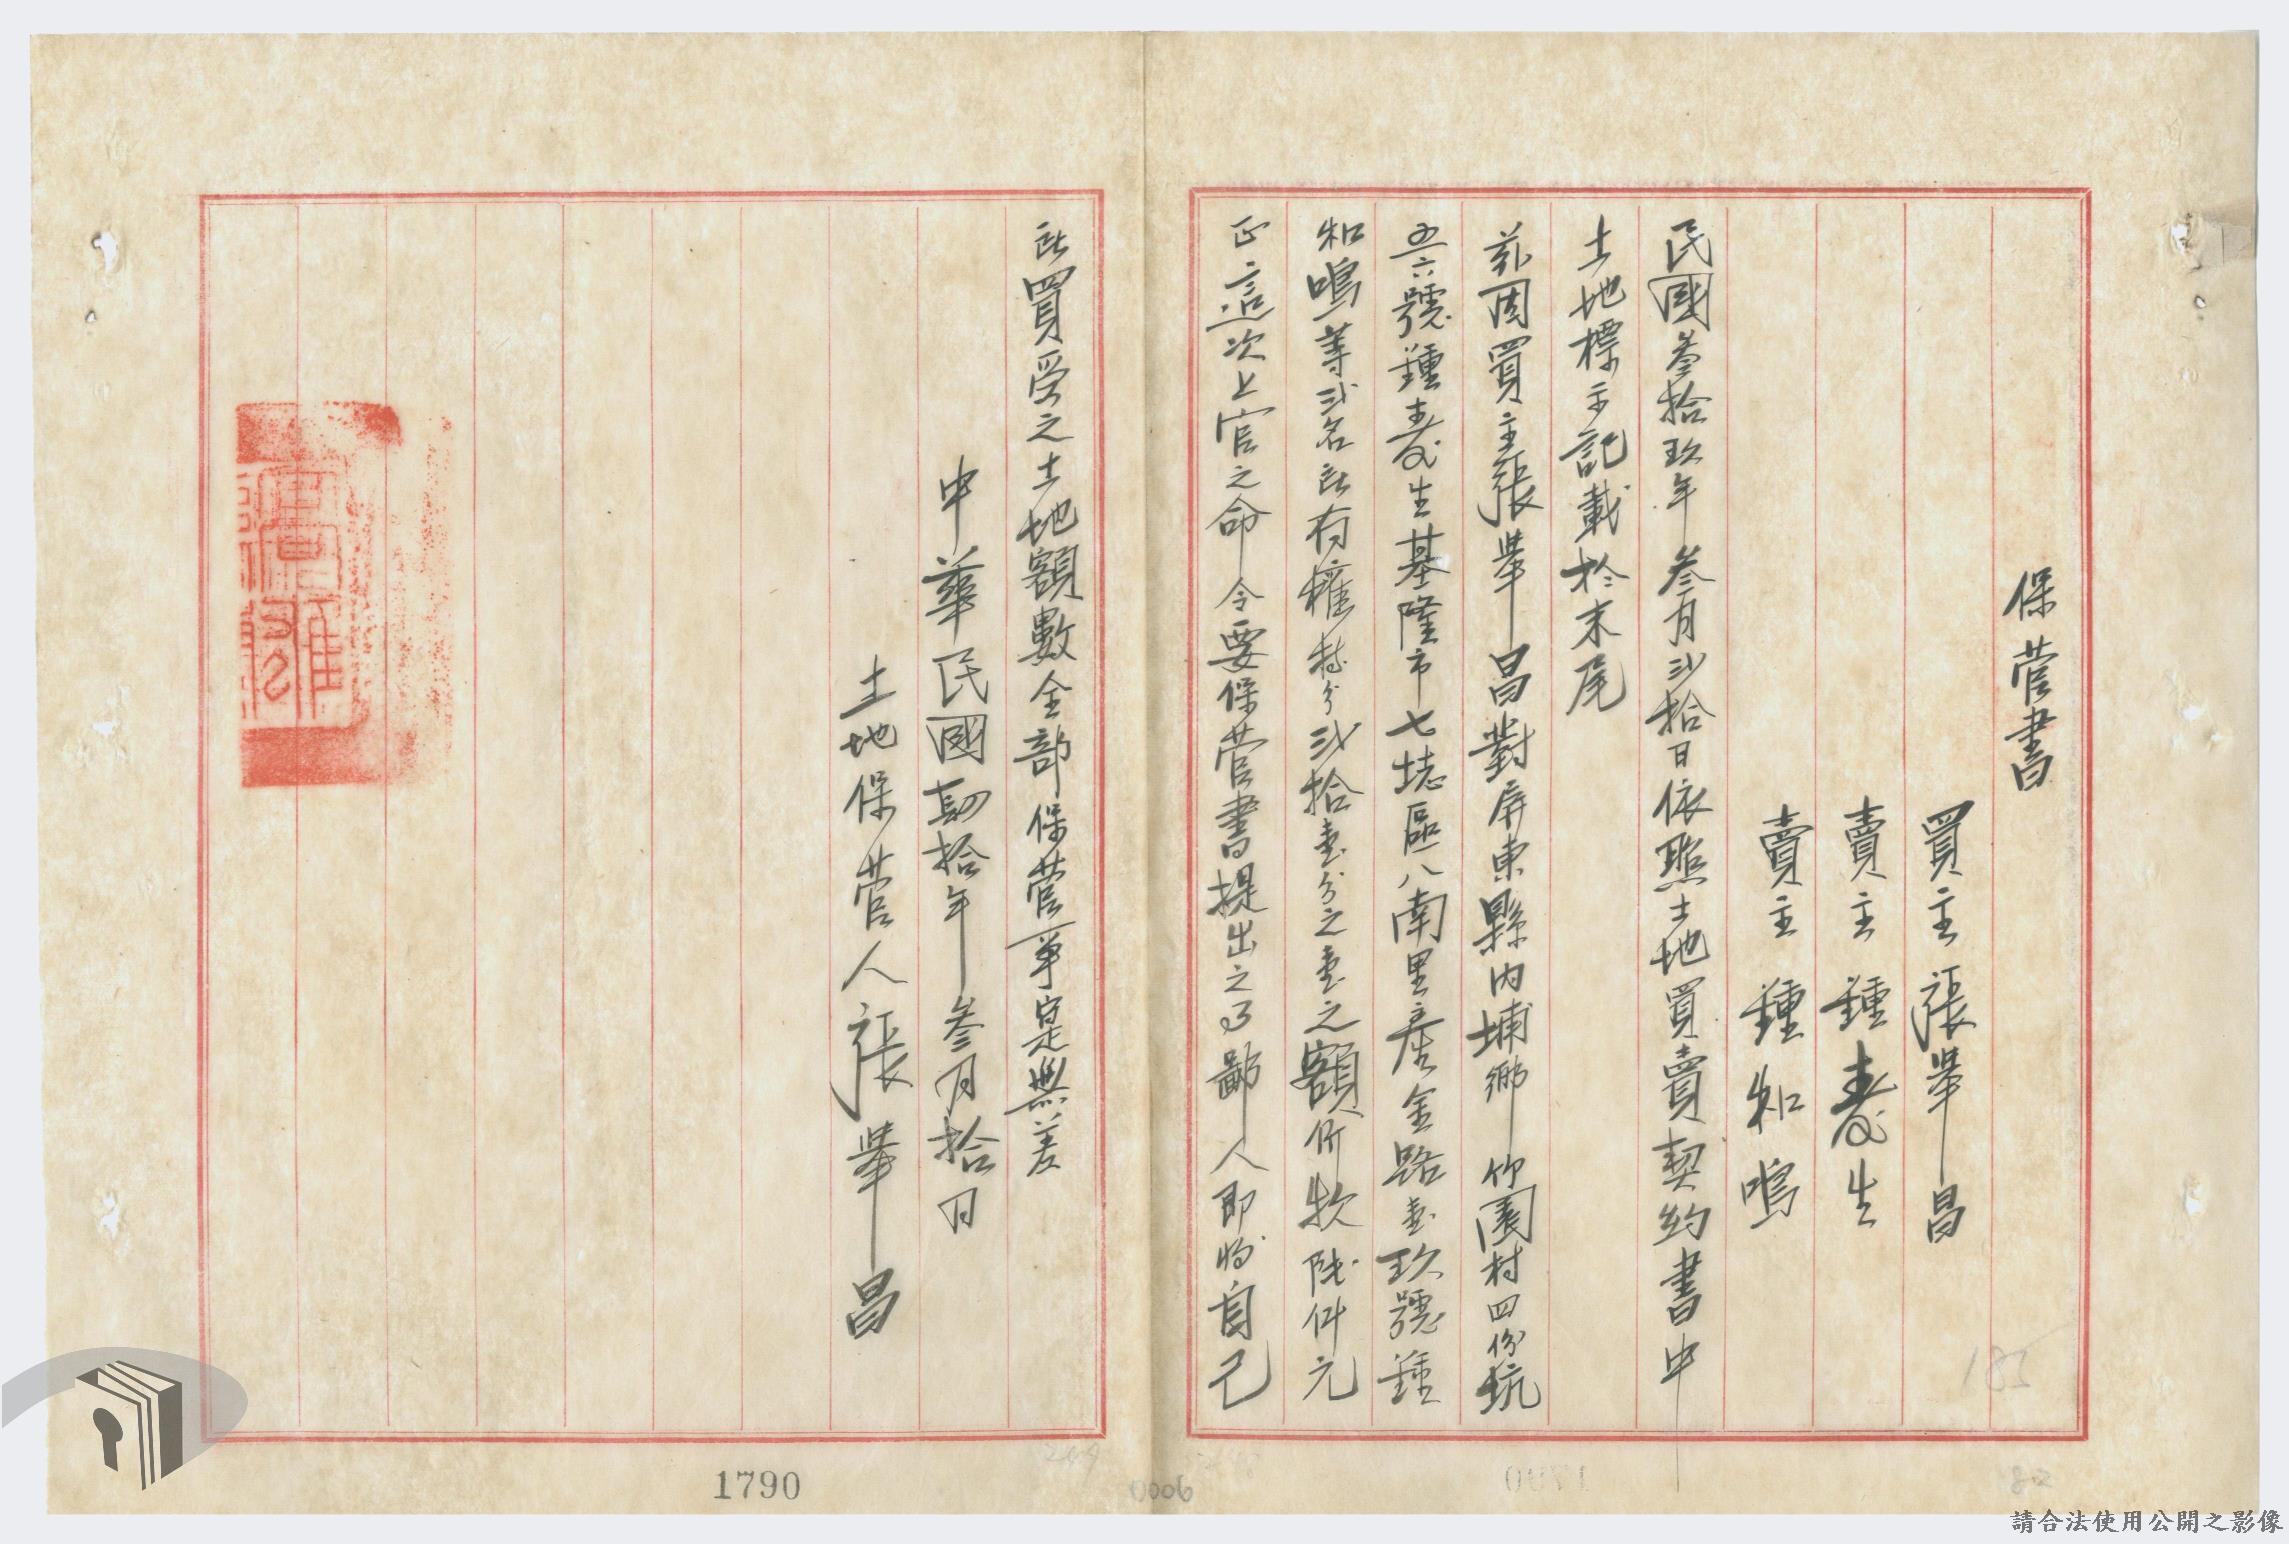 保管書
買主 張舉昌
賣主 鍾春生
賣主 鍾和鳴
民國叄拾玖年叄月弍拾日依照土地買賣契約書中
土地標示記載於末尾
茲因買主張舉昌對屏東縣內埔鄉竹圍村四份坑
五六號鍾春生基隆市七堵區八南里產金路壹玖號鍾
和鳴等弍名所有權持分弍拾壹分之壹之額價款陸仟元
正這次上官之命令要保管書提出之事鄙人即將自己
所買受之土地額數全部保管事定無差
中華民國肆拾年叄月拾日
土地保管人張舉昌
1790
0006
185
82
請合法使用公開之影像